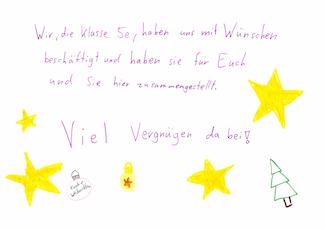 Wir, die Klasse 5e, haben uns mit Wünschen
beschäftigt und haben sie für Euch
und Sie hier zusammengestellt.
Viel Vergnügen dabei!